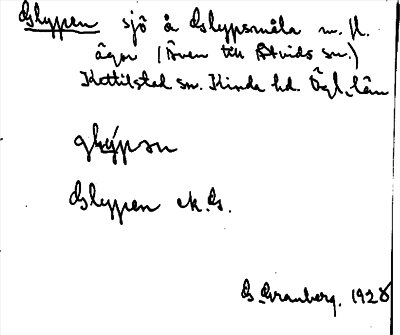 Glypen sjö å Glypsmåla m. fl.
ägor (Även till Åtvids sn.)
Kettilstad sn. Kinda hd. Ögl. län
glýpən
Glypen ek.G.
G. Granberg. 1928